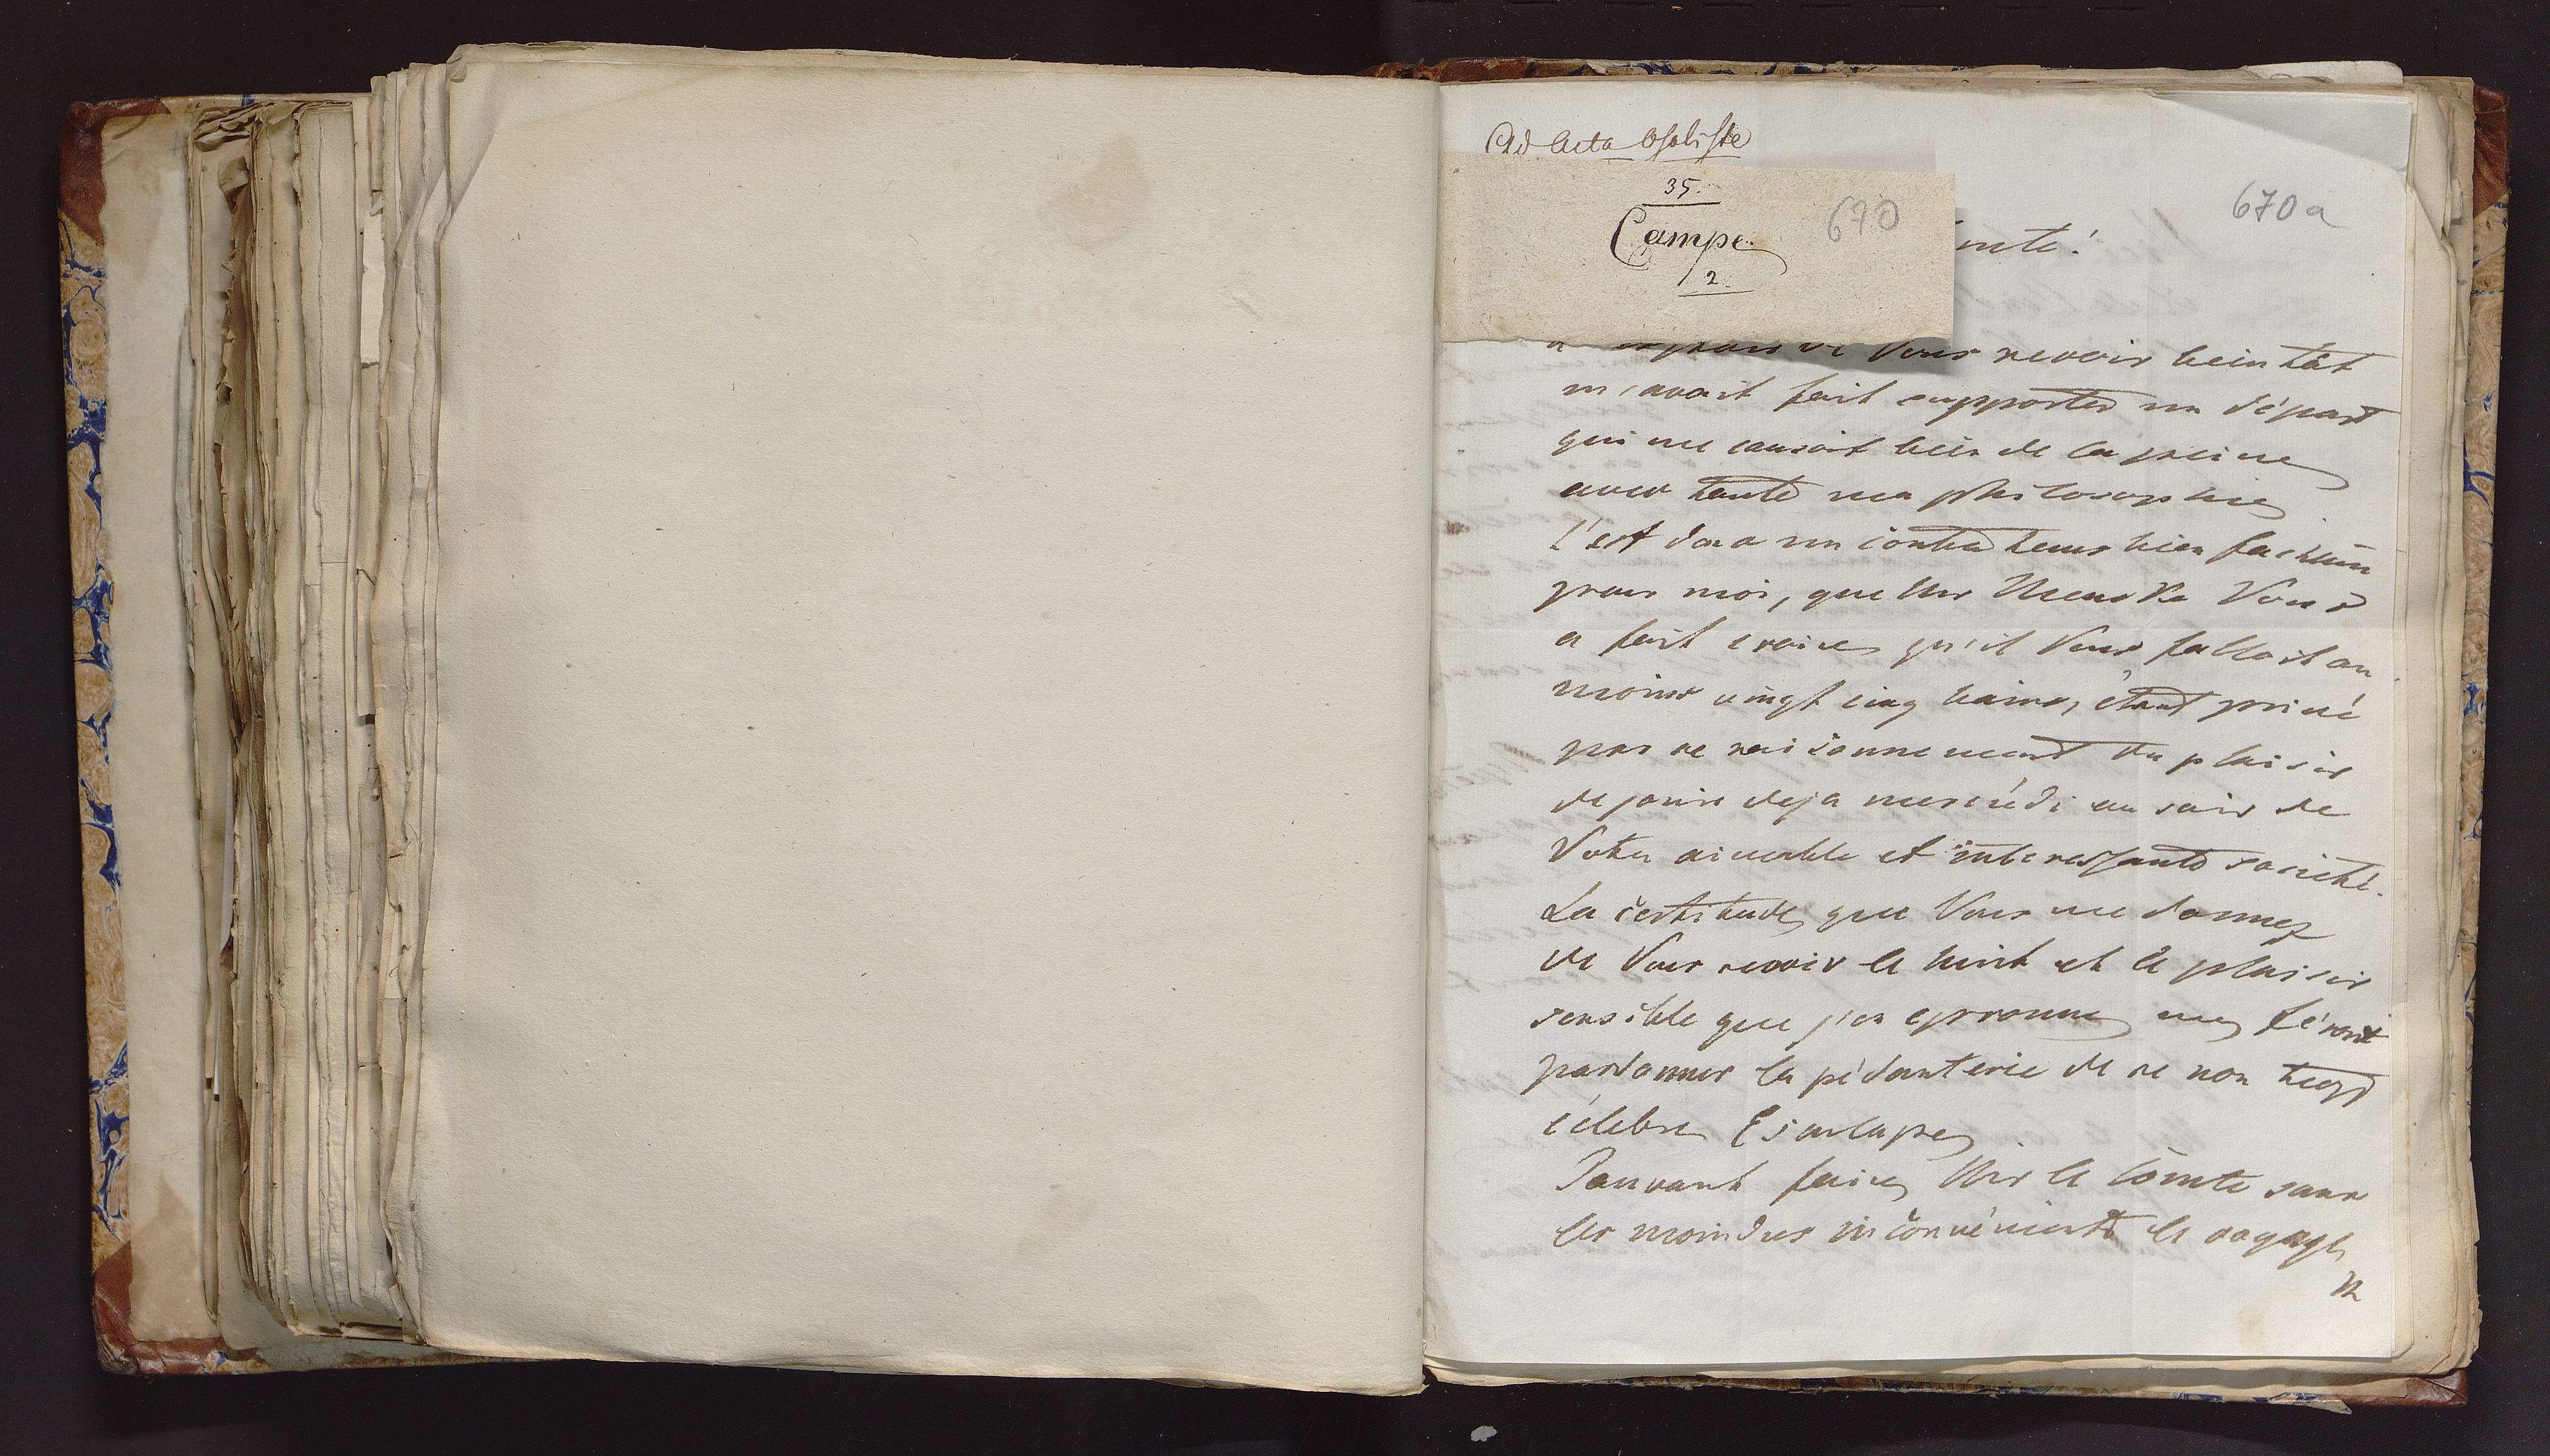 Ad Acta
35.
Campe
2.
670
670a
mte!
de Vous revoir bientât
m'avait fait supporter un départ
qui me causoit bien de la peine
avec toute ma philosophie
C'est donc un contretems bien facheux
pour moi, que Mr Vous
a fait croire qu'il Vous falloit au
moins vingt cinq bains, étant privé
par ce raisonnement du plaisir
de jouir deja mercredi au soir de
Votre aimable et interessante societé.
La certitude que Vous me donnez
de Vous revoir le huit et le plaisir
sensible que j'en eprouve me féront
pardonner la pédanterie de ce non trop
célebre Esculape
Pouvant faire Mr le Comte sans
les moindres inconvénients le voyage